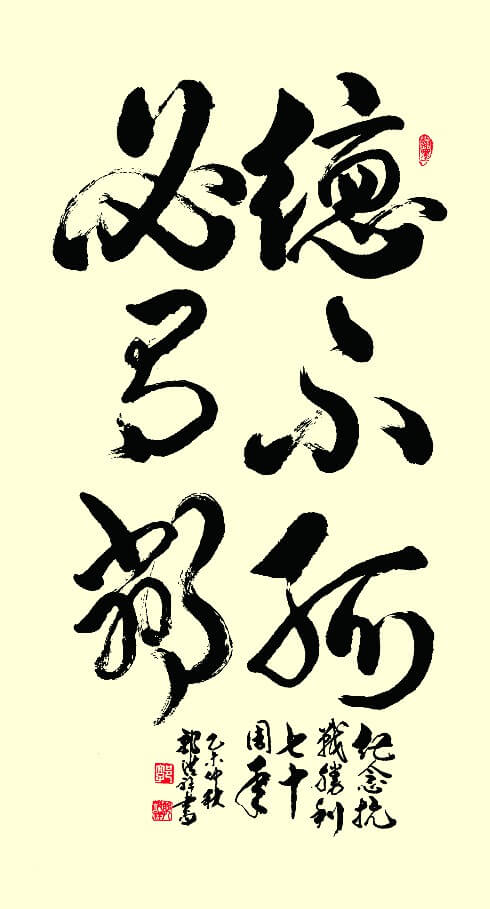 德不孤
必有鄰
紀念抗
戰勝利
七十
周年
乙未仲秋
書